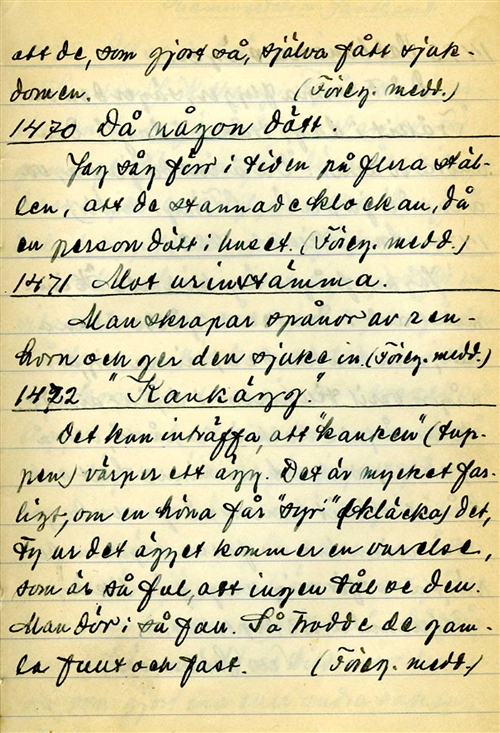 att de, som gjort så, själva fått sjuk-
domen. (Föreg. medd.)
1470 Då någon dött.
Jag såg förr i tiden på flera stäl-
len, att de stannade klockan, då
en person dött i huset. (Föreg. medd.)
1471 Mot urinstämma.
Man skrapar spånor av ren-
horn och ger den sjuke in. (Föreg. medd.)
1472 "Kankägg."
Det kan inträffa, att "kanken" (tup-
pen) värper ett ägg. Det är mycket far-
ligt, om en höna får "syr" (kläcka) det,
ty ur det ägget kommer en varelse,
som är så ful, att ingen tål se den.
Man dör i så fall. Så trodde de gam-
la fullt och fast. (Föreg. medd.)